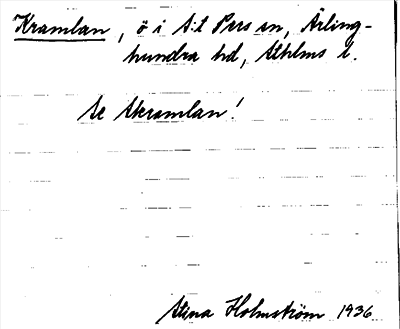 Kramlan, ö i S:t Pers sn, Ärling-
hundra hd, Sthlms l.
Se Skramlan!
Stina Holmström 1936